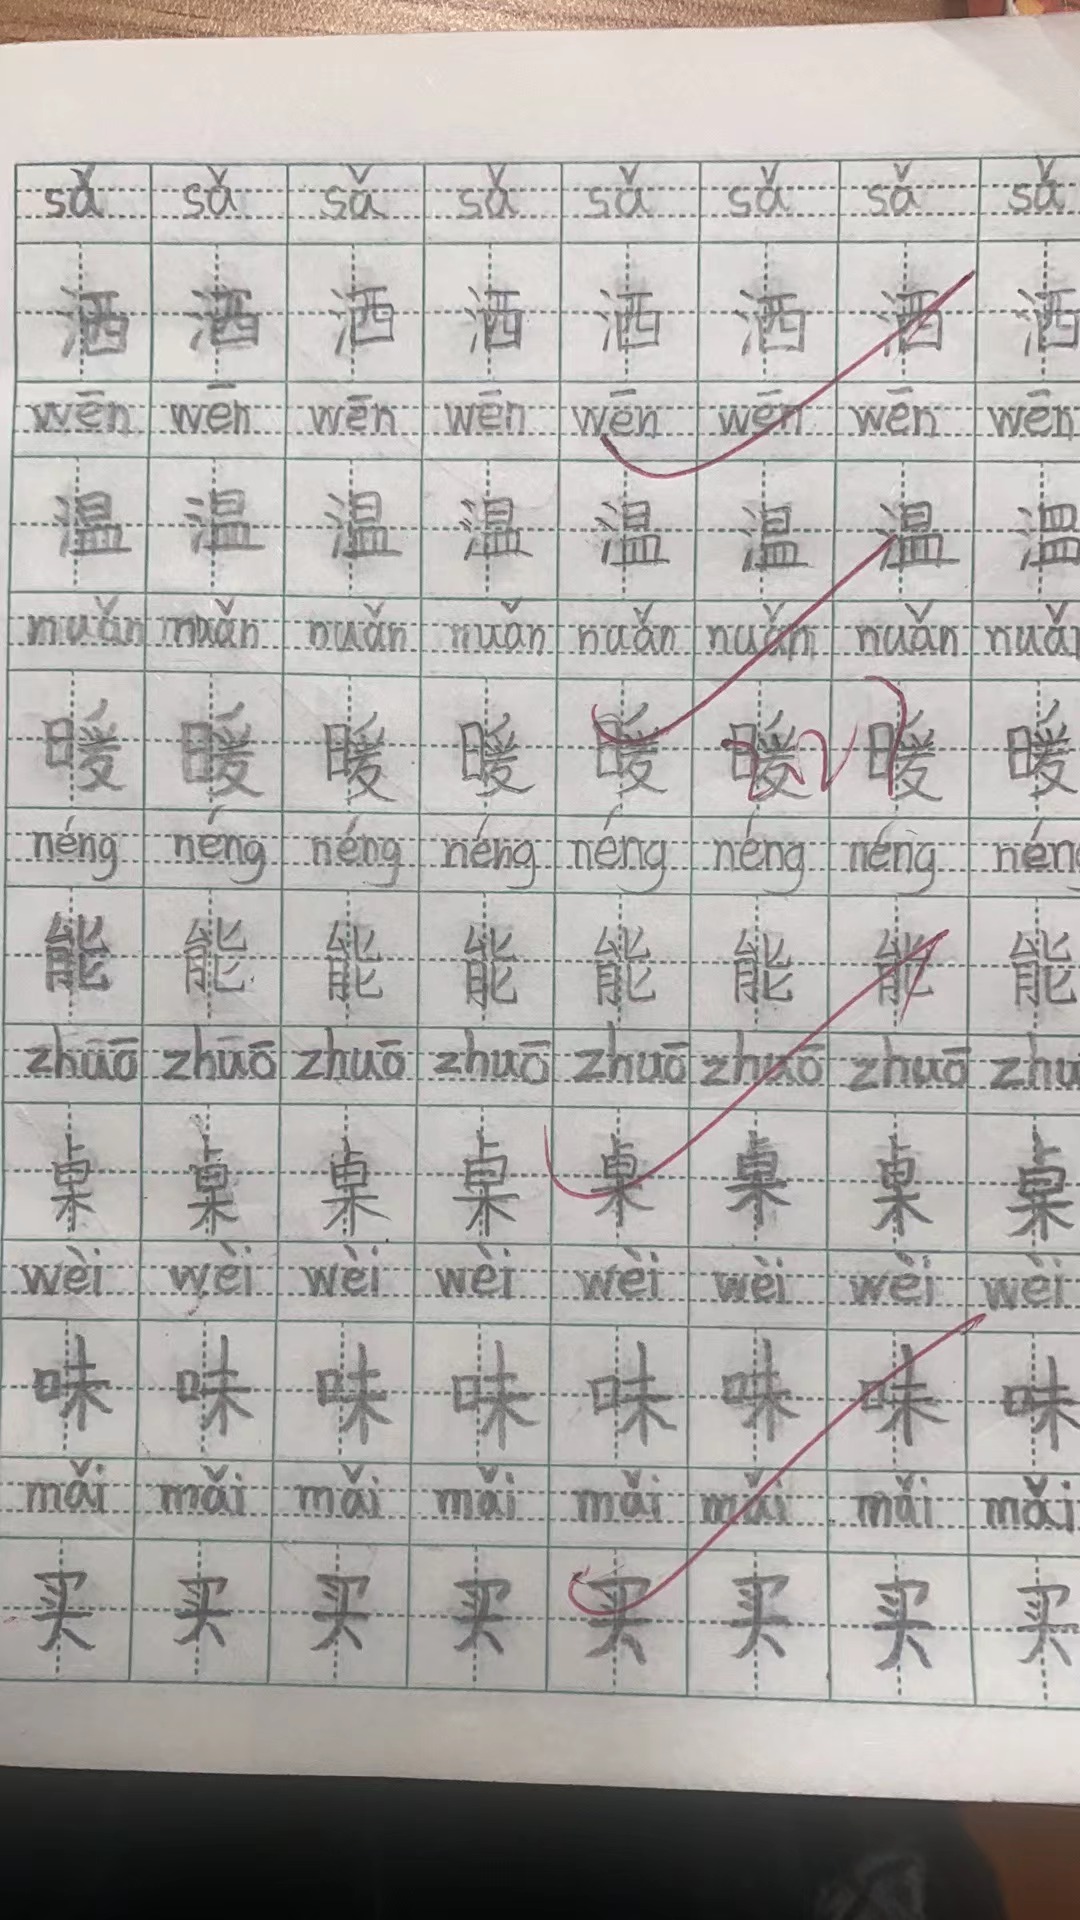 sǎ sǎ sǎ sǎ sǎ sǎ sǎ sǎ
洒 洒 洒 洒 洒 洒 洒 洒
wēn wēn wēn wēn wēn wēn wēn wēn
温 温 温 温 温 温 温 温
nuǎn nuǎn nuǎn nuǎn nuǎn nuǎn nuǎn nuǎ
暖 暖 暖 暖 暖 暖 暖 暖
néng néng néng néng néng néng néng néng
能 能 能 能 能 能 能 能
zhuō zhuō zhuō zhuō zhuō zhuō zhuō zhu
桌 桌 桌 桌 桌 桌 桌 桌
wèi wèi wèi wèi wèi wèi wèi wèi
味 味 味 味 味 味 味 味
mǎi mǎi mǎi mǎi mǎi mǎi mǎi mǎi
买 买 买 买 买 买 买 买